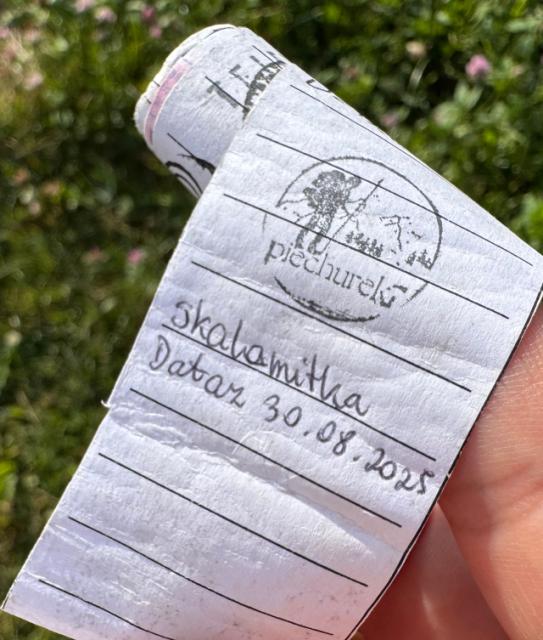 piechurek
skalamitka
Dataz 30.08.2025